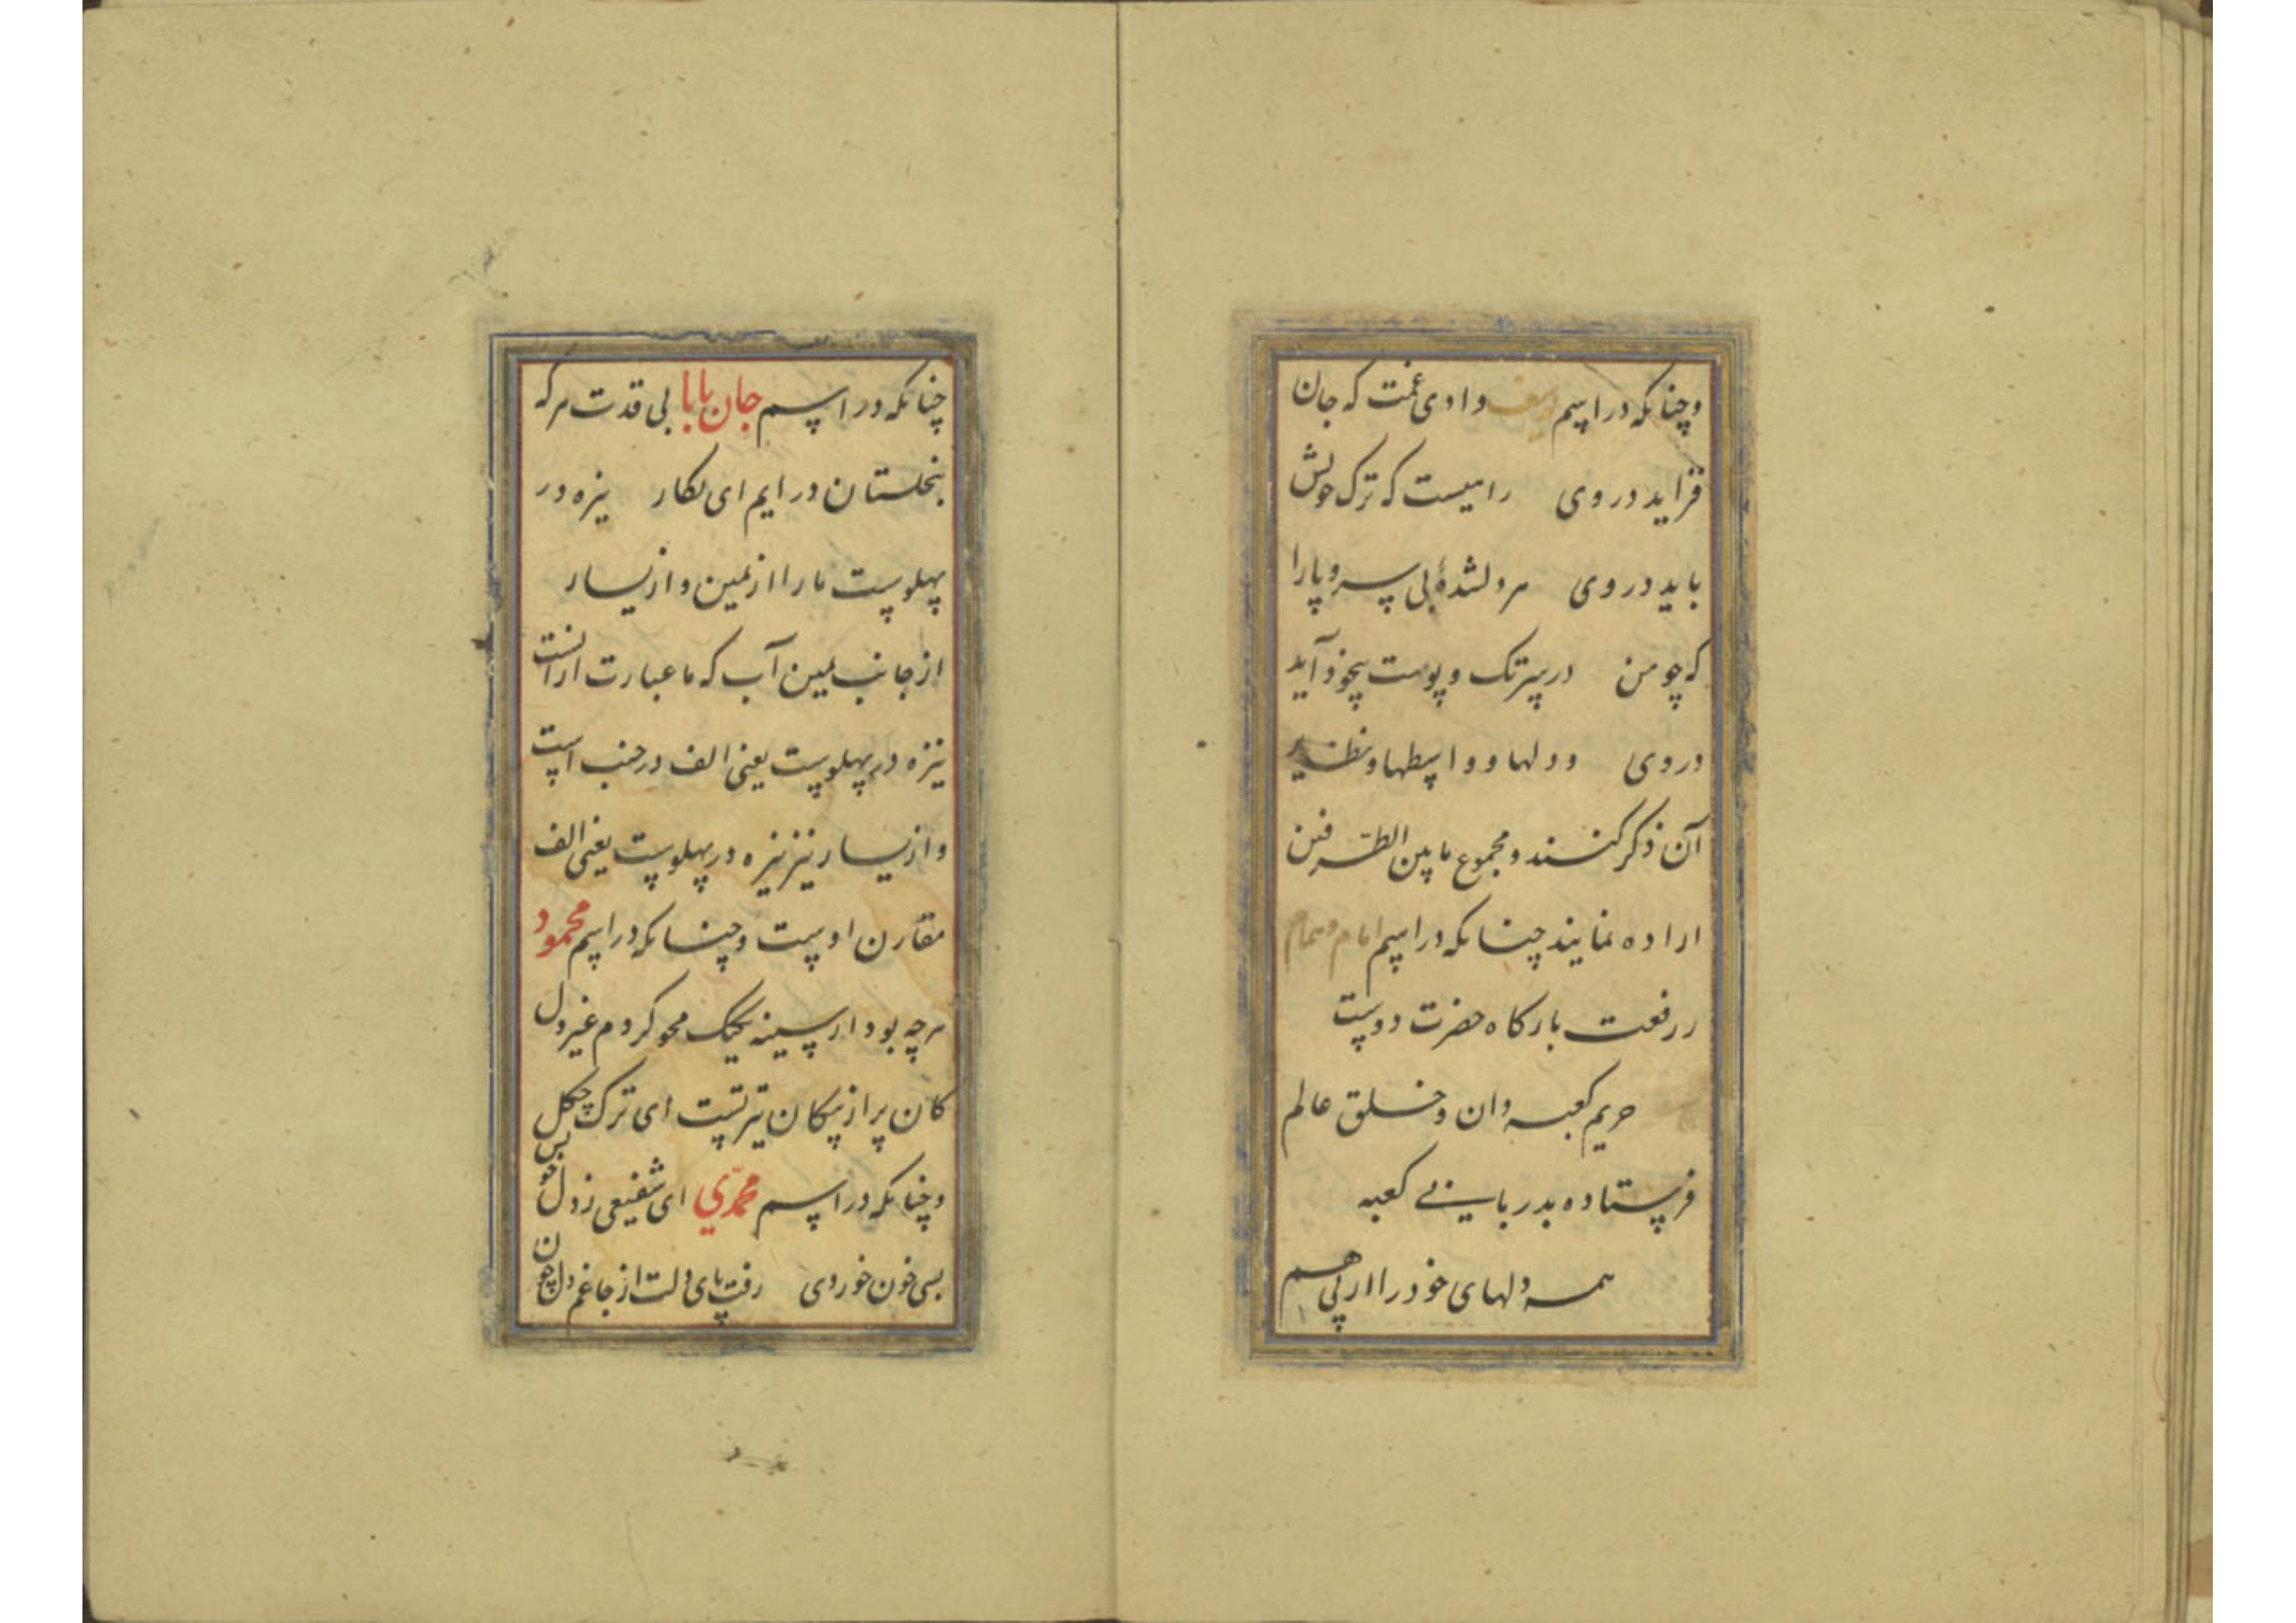 وچنانکه در اسم یوسف وادی غمت که جان
فزاید در وی راهیست که ترک خویش
باید در وی هر دلشدهٔ بی سر و پا را
که چو من در پیرتک و پوست بیخود آید
در وی و دلها و واسطها و نظیر
آن ذکر کنند و مجموع مابین الطرفین
اراده نمایند چنانکه در اسم امام و همام
ز رفعت بارگاه حضرت دوست
حریم کعبه دان و خلق عالم
فرستاده بدربانی کعبه
همه دلهای خود را از پی هم
چنانکه در اسم جان بابا بی قدت هرگه
بنخلستان درایم ای نگار نیزه در
پهلوست ما را از یمین و از یسار
از جانب یمین آب که ما عبارت ازانست
نیزه در پهلوست یعنی الف در جنب است
و از یسار نیز نیزه در پهلوست یعنی الف
مقارن اوست وچنانکه در اسم محمود
هرچه بود از سینه یکیک محو کردم غیر دل
کان پر از پیکان تیر تست ای ترک چگل
وچنانکه در اسم محمدی ای شفیعی ز دل چو
بسی خون خوردی رفت پای دلت از جا غم دل چون